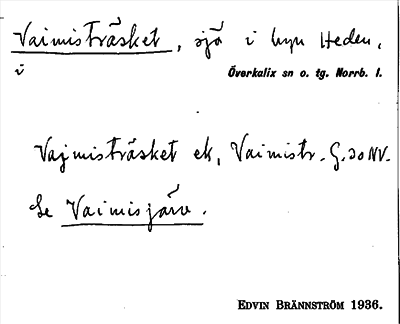 Vaimisträsket, sjö i byn Heden,
i Överkalix sn o. tg. Norrb. l.
Vajmisträsket ek, Vaimistr. G. 30 NV.
Se Vaimisjärv.
EDVIN BRÄNNSTRÖM 1936.